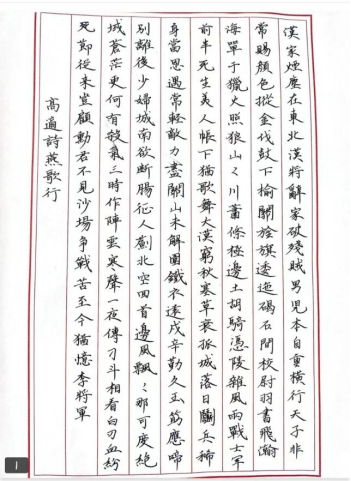 漢家煙塵在東北漢將辭家破殘賊男兒本自重橫行天子非
常賜顏色摐金伐鼓下榆關旌旗逶迤碣石間校尉羽書飛瀚
海單于獵火照狼山〻川蕭條極邊土胡騎憑陵雜風雨戰士軍
前半死生美人帳下猶歌舞大漠窮秋寒草衰孤城落日鬭兵稀
身當恩遇常輕敵力盡關山未解圍鐵衣遠戍辛勤久玉筯應啼
別離後少婦城南欲斷腸征人薊北空回首邊風飄〻那可度絕
域蒼茫更何有殺氣三時作陣雲寒聲一夜傳刁斗相看白刃血紛
死節從來豈顧勳君不見沙場爭戰苦至今猶憶李將軍
高適詩燕歌行
1